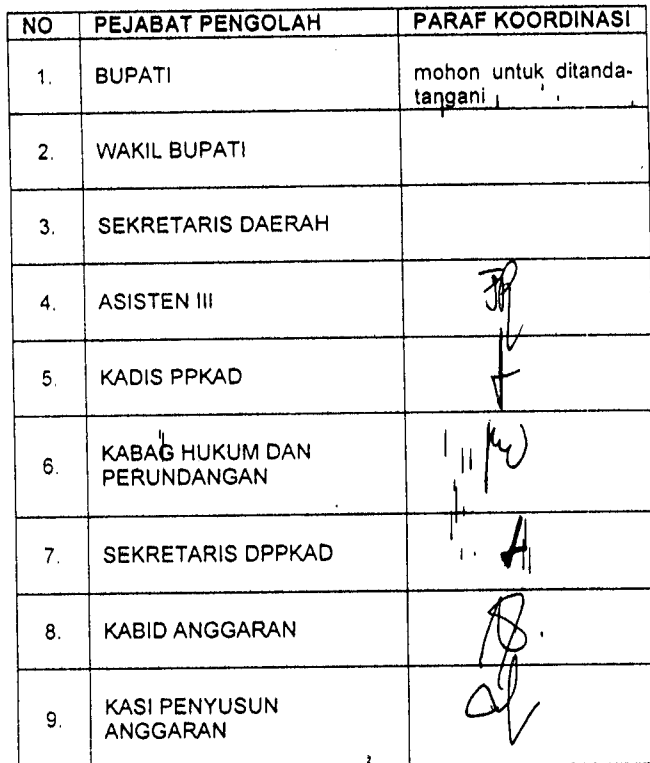 NO PEJABAT PENGOLAH PARAF KOORDINASI
1. BUPATI mohon untuk ditanda-
tangani
2. WAKIL BUPATI
3. SEKRETARIS DAERAH
4. ASISTEN III
5. KADIS PPKAD
6. KABAG HUKUM DAN
PERUNDANGAN
7. SEKRETARIS DPPKAD
8. KABID ANGGARAN
9. KASI PENYUSUN
ANGGARAN